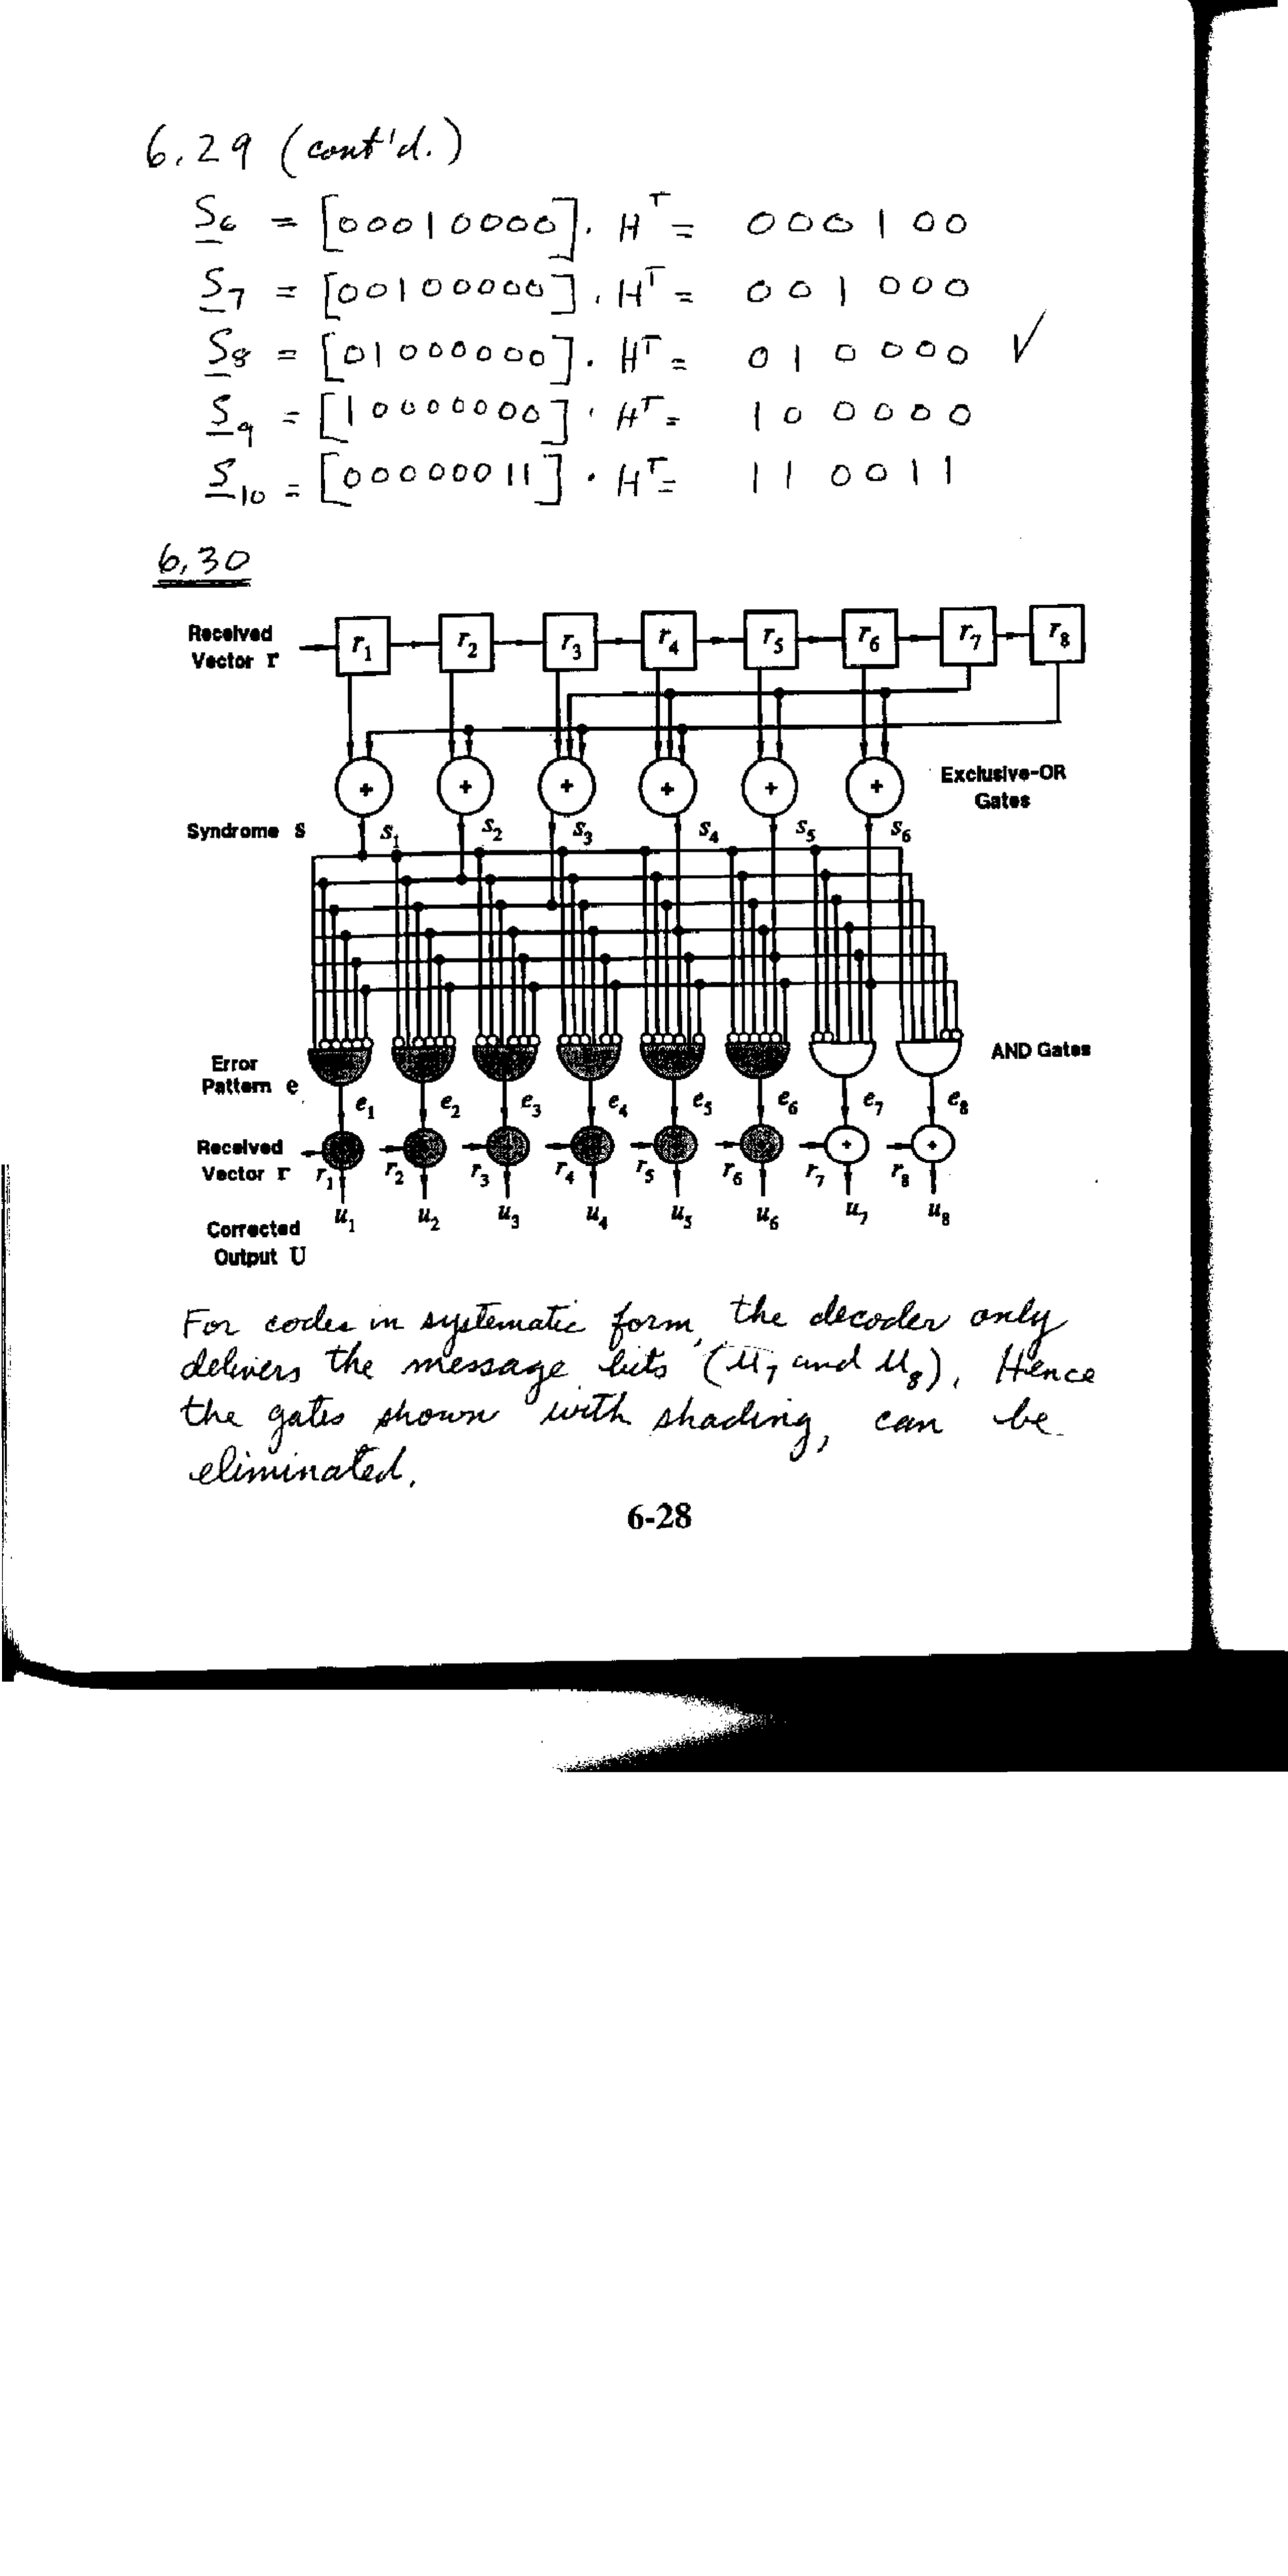 6.29 (cont'd.)
S6 = [00010000] . H^T = 000100
S7 = [00100000] . H^T = 001000
S8 = [01000000] . H^T = 010000 ✓
S9 = [10000000] . H^T = 100000
S10 = [00000011] . H^T = 110011
6.30
Received
Vector r
r1 r2 r3 r4 r5 r6 r7 r8
+ + + + + +
Exclusive-OR
Gates
Syndrome S
s1 s2 s3 s4 s5 s6
AND Gates
Error
Pattern e
e1 e2 e3 e4 e5 e6 e7 e8
Received
Vector r
r1 r2 r3 r4 r5 r6 r7 r8
+ +
u1 u2 u3 u4 u5 u6 u7 u8
Corrected
Output U
For codes in systematic form, the decoder only
delivers the message bits (u7 and u8). Hence
the gates shown with shading, can be
eliminated.
6-28